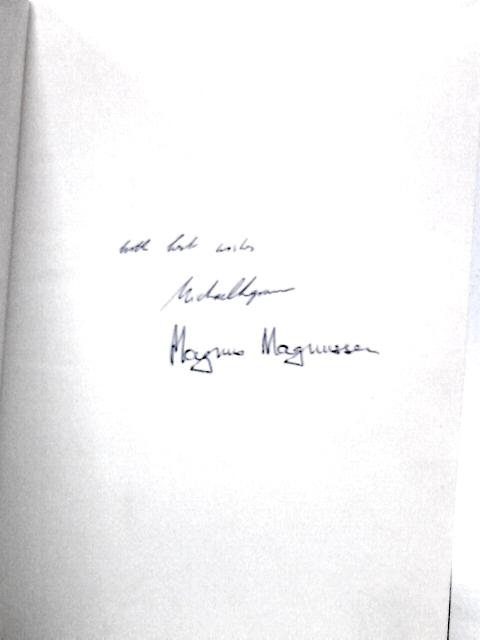 with best wishes
Michael
Magnus Magnusson